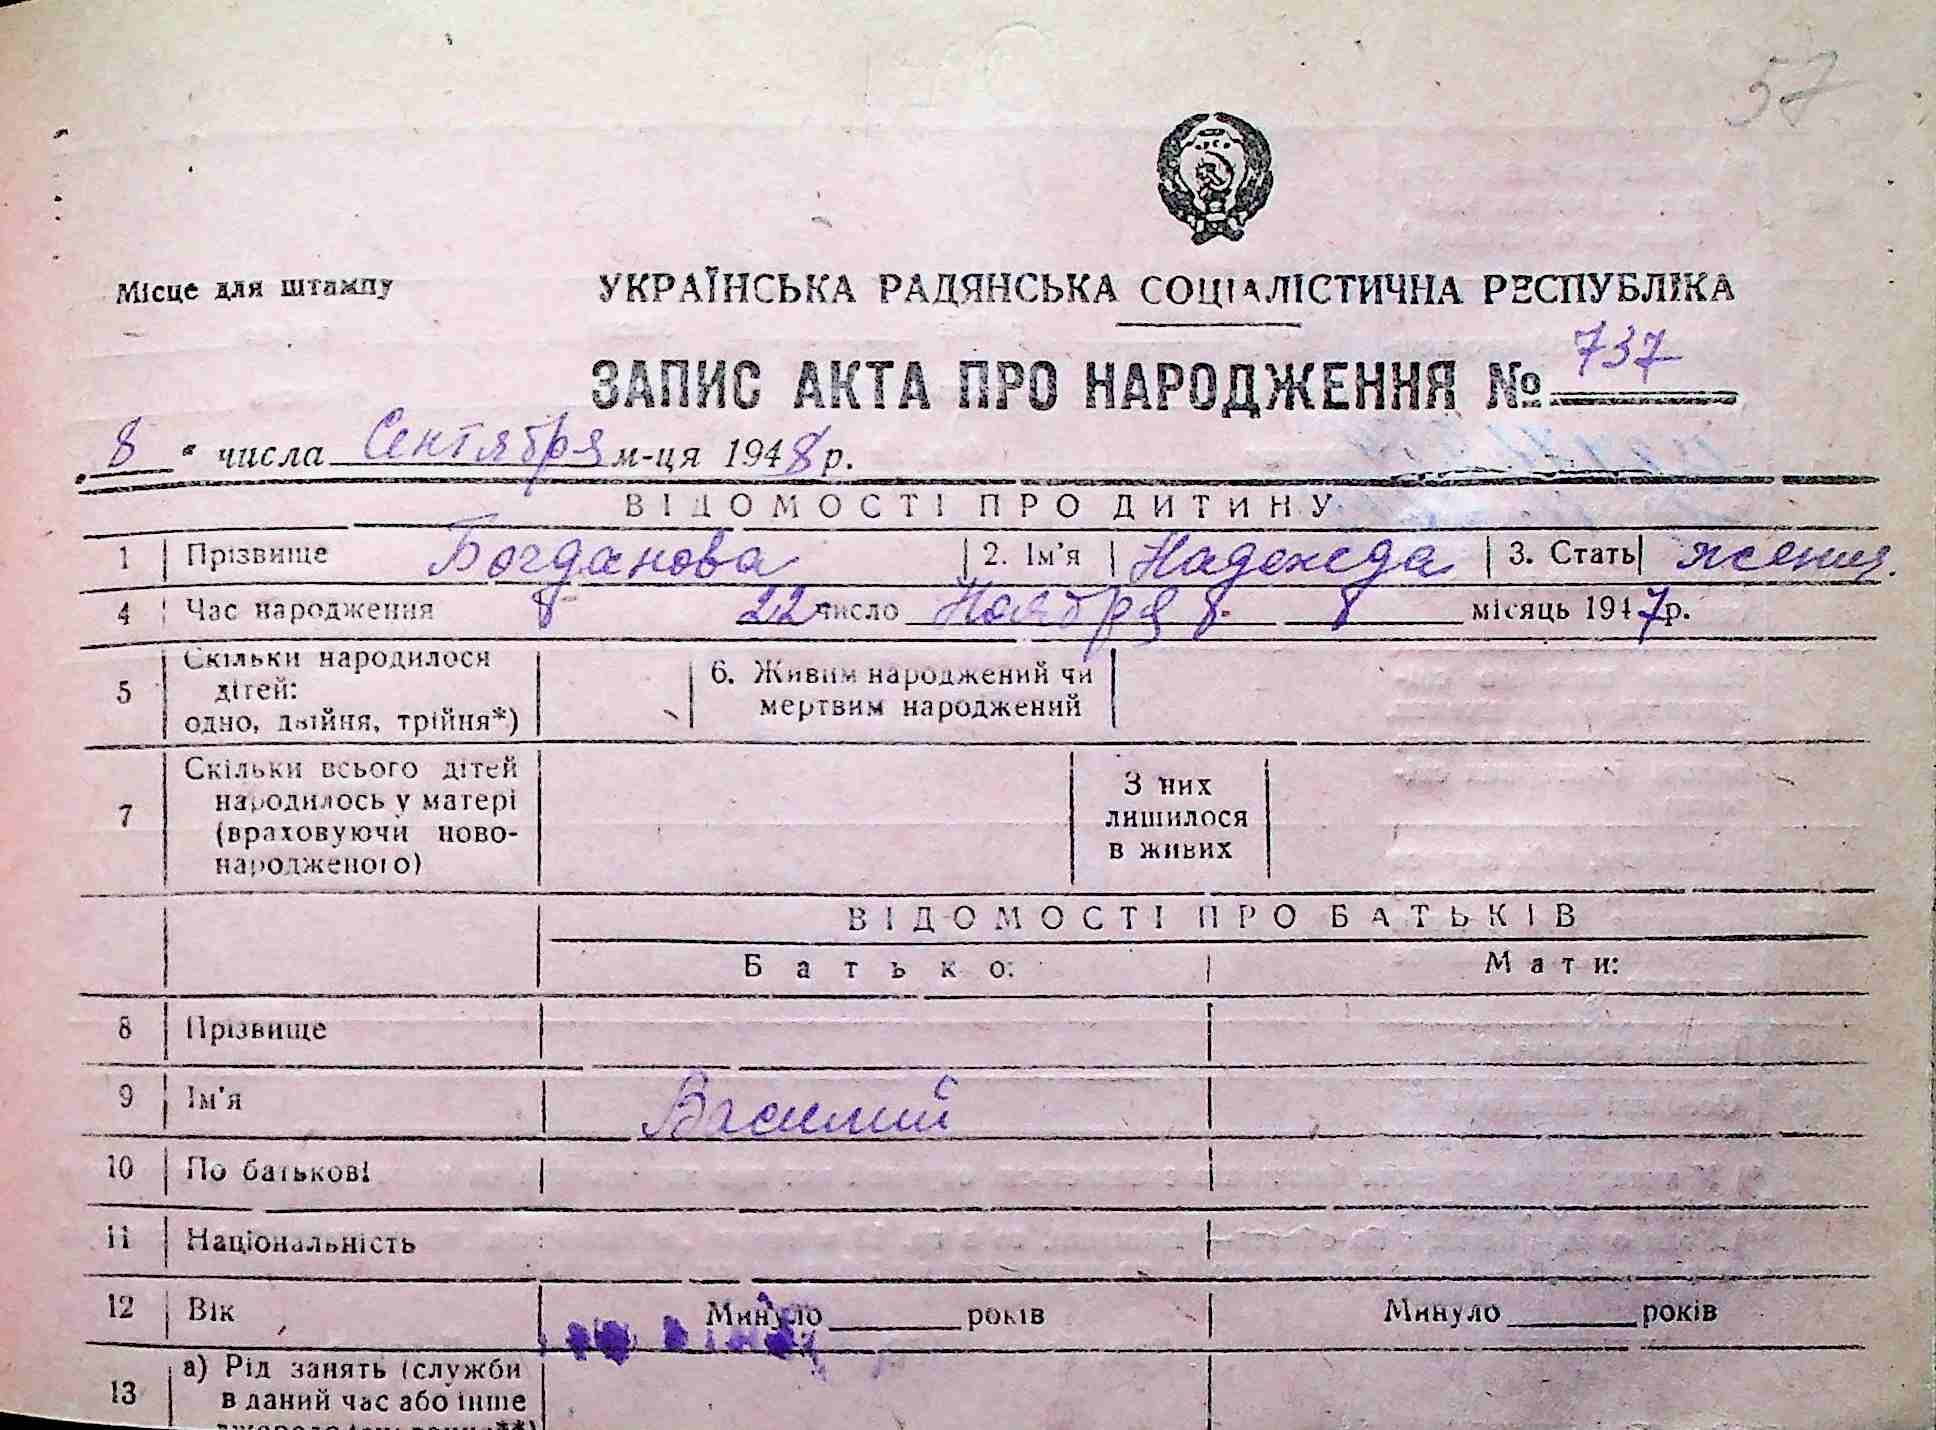 57
Місце для штампу
УКРАЇНСЬКА РАДЯНСЬКА СОЦІАЛІСТИЧНА РЕСПУБЛІКА
ЗАПИС АКТА ПРО НАРОДЖЕННЯ № 737
8 " числа Сентября м-ця 1948 р.
ВІДОМОСТІ ПРО ДИТИНУ
1 Прізвище Богданова 2. Ім'я Надежда 3. Стать женск.
4 Час народження 22 число Ноября місяць 1947 р.
5 Скільки народилося дітей: одно, двійня, трійня*) 6. Живим народжений чи мертвим народжений
7 Скільки всього дітей народилось у матері (враховуючи ново-народженого) З них лишилося в живих
ВІДОМОСТІ ПРО БАТЬКІВ
Батько: Мати:
8 Прізвище
9 Ім'я Василий
10 По батькові
11 Національність
12 Вік Минуло років Минуло років
13 а) Рід занять (служби в даний час або інше